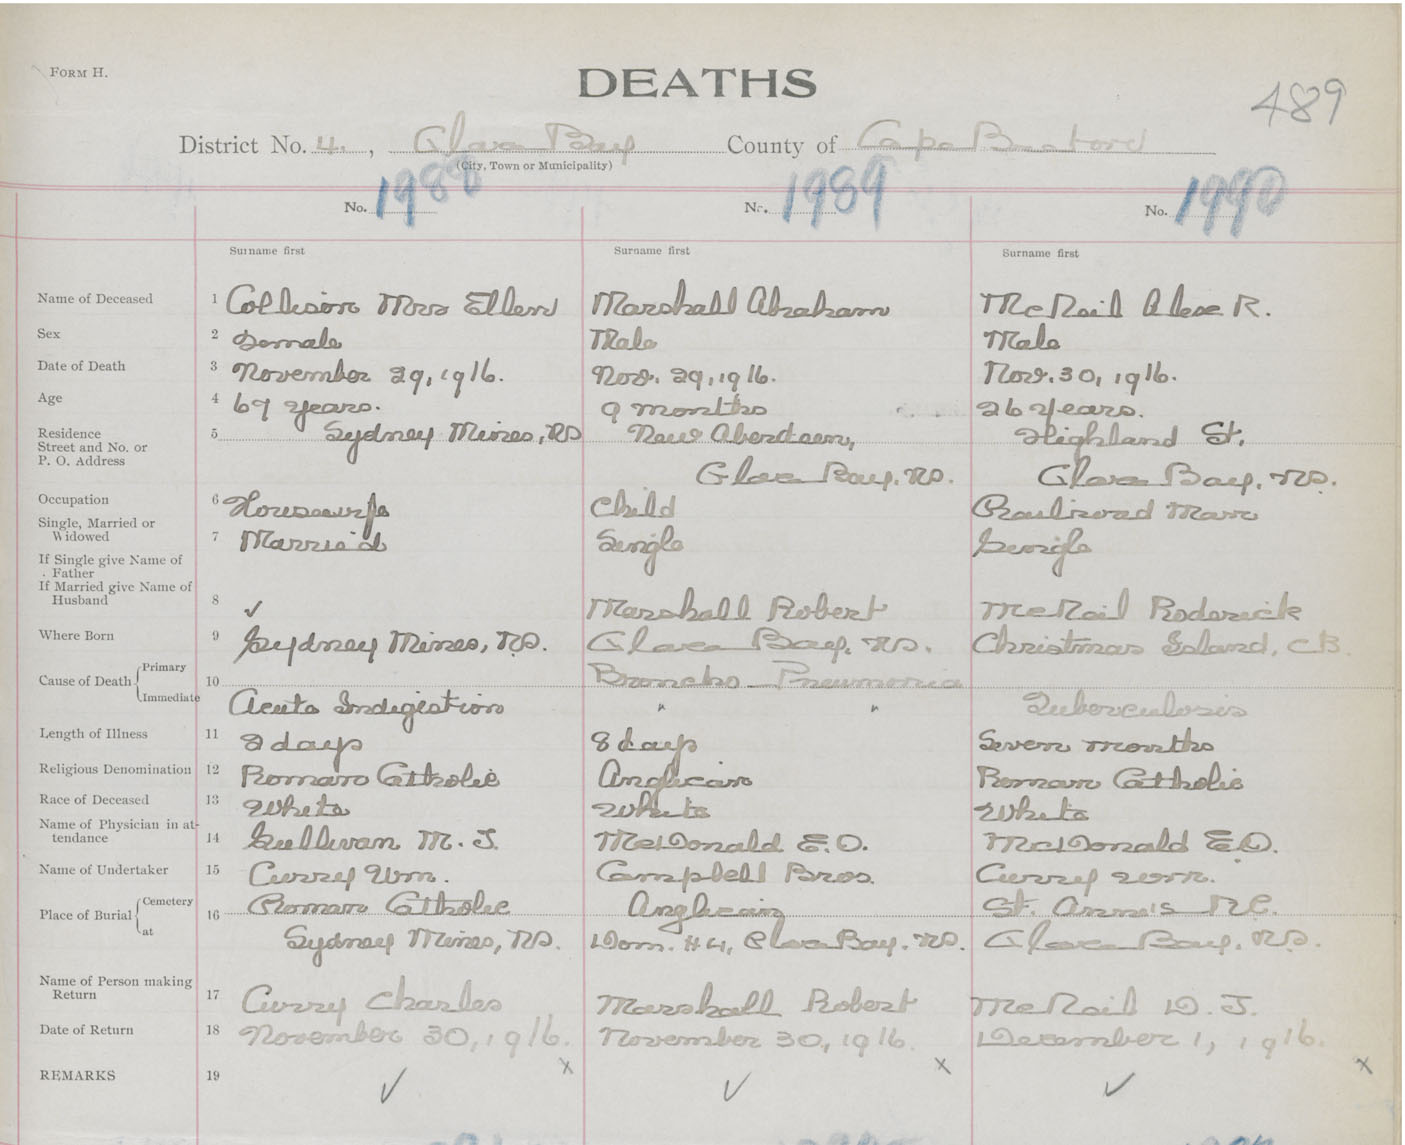 FORM H.
DEATHS
489
District No. 4. , Glace Bay County of Cape Breton
(City, Town or Municipality)
No. 1988 No. 1989 No. 1990
Surname first Surname first Surname first
Name of Deceased 1 Collison Mrs Ellen Marshall Abraham McNeil Alex R.
Sex 2 Female Male Male
Date of Death 3 November 29, 1916. Nov. 29, 1916. Nov. 30, 1916.
Age 4 69 years. 9 months 26 years.
Residence 5 Sydney Mines, NS New Aberdeen, Highland St.
Street and No. or
P. O. Address Glace Bay, NS. Glace Bay, NS.
Occupation 6 Housewife Child Railroad Man
Single, Married or
Widowed 7 Married Single Single
If Single give Name of
Father
If Married give Name of
Husband 8 ✓ Marshall Robert McNeil Roderick
Where Born 9 Sydney Mines, NS. Glace Bay, NS. Christmas Island, CB.
Cause of Death { Primary 10 Broncho Pneumonia
Immediate Acute Indigestion " " Tuberculosis
Length of Illness 11 2 days 8 days Seven months
Religious Denomination 12 Roman Catholic Anglican Roman Catholic
Race of Deceased 13 White White White
Name of Physician in at-
tendance 14 Sullivan M. J. McDonald E.O. McDonald E.O.
Name of Undertaker 15 Curry Wm. Campbell Bros. Curry Wm.
Place of Burial { Cemetery 16 Roman Catholic Anglican St. Anne's R.C.
at Sydney Mines, NS. Dom. #4, Glace Bay, NS. Glace Bay, NS.
Name of Person making
Return 17 Curry Charles Marshall Robert McNeil D. J.
Date of Return 18 November 30, 1916. November 30, 1916. December 1, 1916.
REMARKS 19 ✓ x ✓ x ✓ x